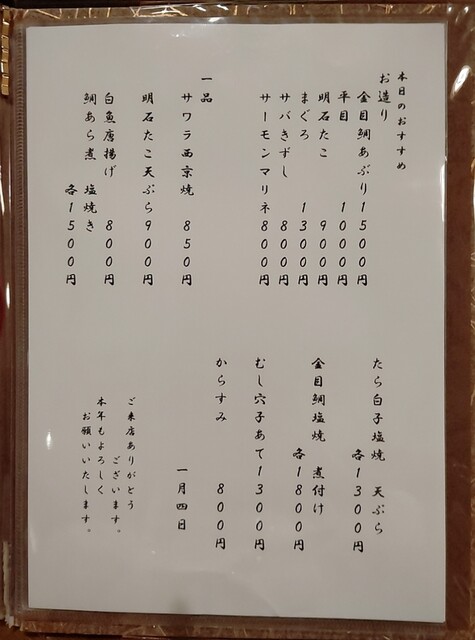 本日のおすすめ
お造り
金目鯛あぶり1500円
平目 1000円
明石たこ 900円
まぐろ 1300円
サバきずし 800円
サーモンマリネ800円
一品
サワラ西京焼 850円
明石たこ天ぷら900円
白魚唐揚げ 800円
鯛あら煮 塩焼き
各1500円
たら白子塩焼 天ぷら
各1300円
金目鯛塩焼 煮付け
各1800円
むし穴子あて1300円
からすみ 800円
一月四日
ご来店ありがとう
ございます。
本年もよろしく
お願いいたします。